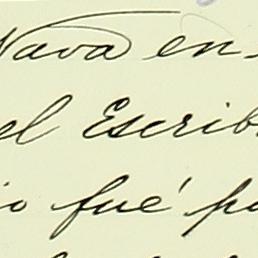 Nava en
el Escrib
io fué po